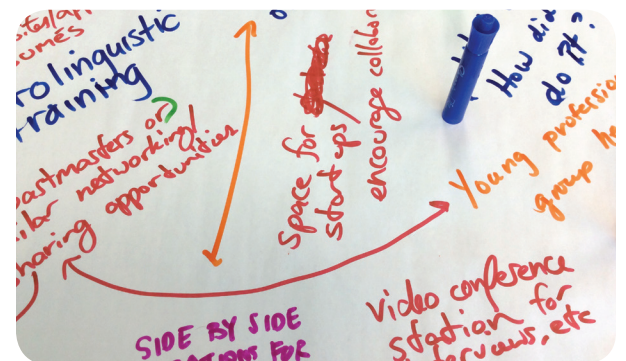 rolinguistic
training
oastmasters or
ilar networking/
sharing opportunities
space for
startups/
encourage collabor
How did
do it?
Young professio
group he
SIDE BY SIDE
ATIONS FOR
video conference
station for
terviews, etc